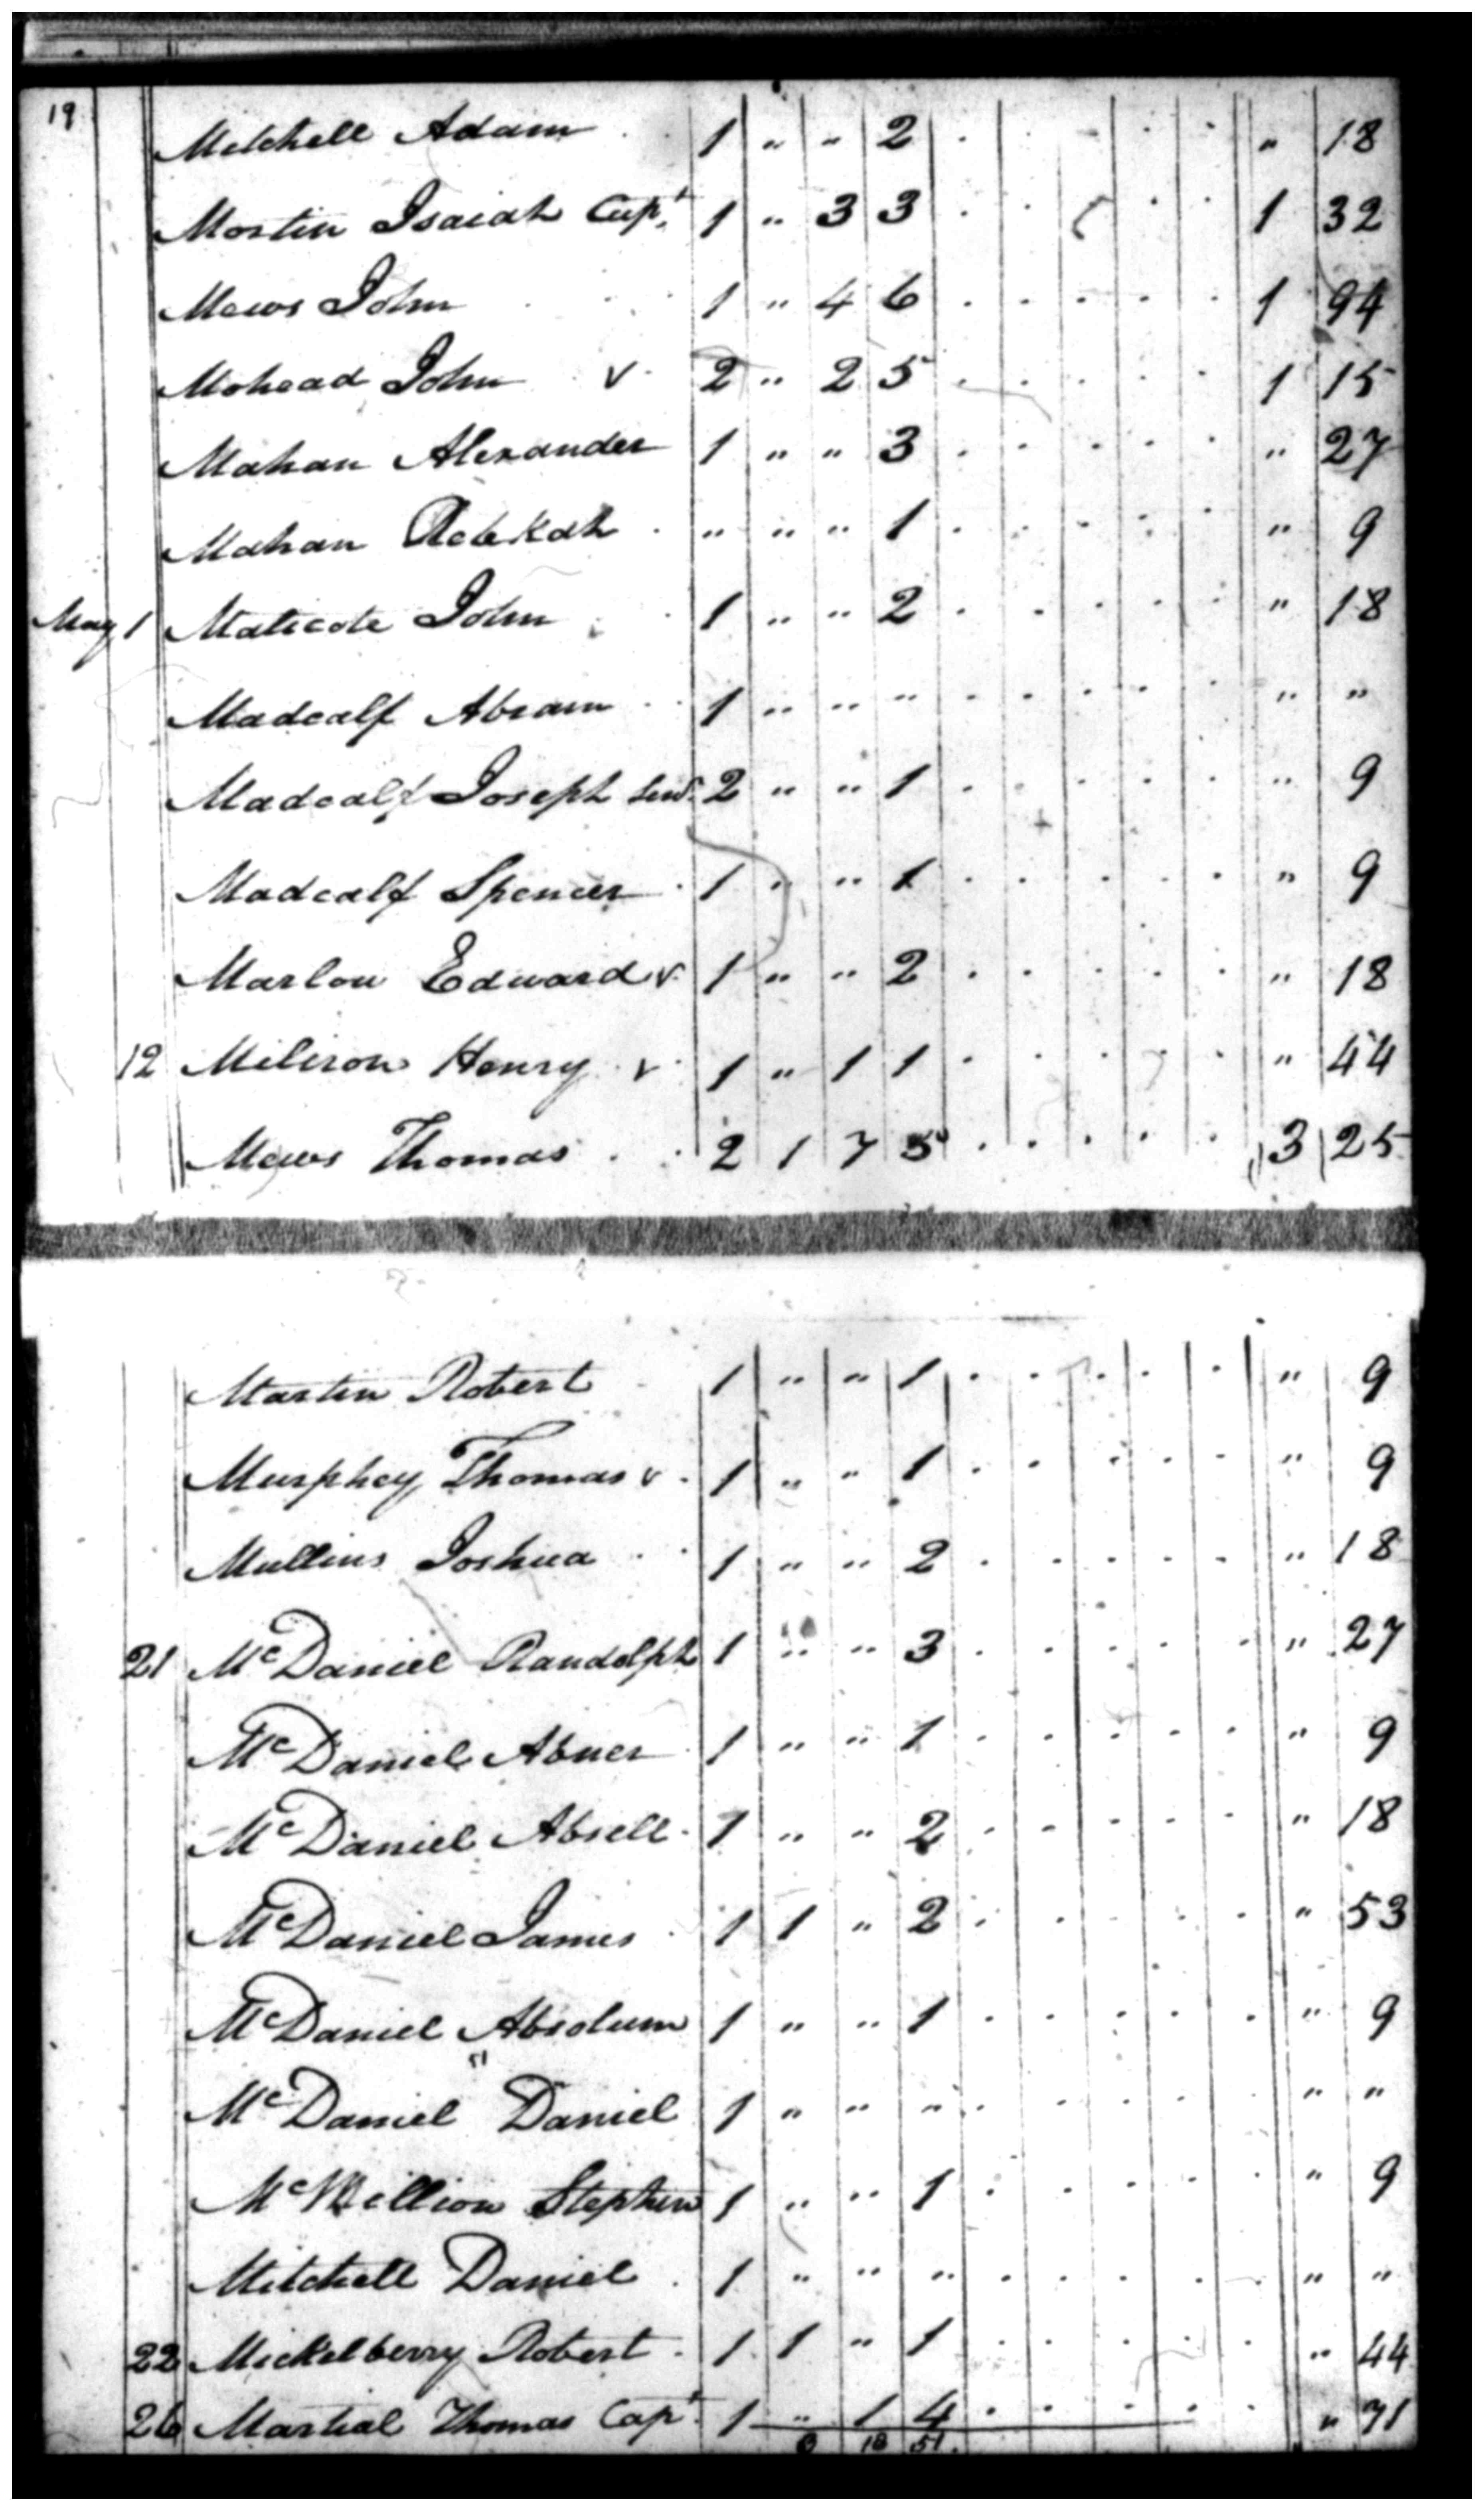 19 Mitchell Adam 1 " " 2 . . . . . " 18
Mostin Isaiah Capt. 1 " 3 3 . . . . . 1 32
Mews John 1 " 4 6 . . . . . 1 94
Mohead John v 2 " 2 5 . . . . . 1 15
Mahan Alexander 1 " " 3 . . . . . " 27
Mahan Rebekah " " " 1 . . . . . " 9
May 1 Maticote John 1 " " 2 . . . . . " 18
Madcalf Abram 1 " " " . . . . . " "
Madcalf Joseph Senr. 2 " " 1 . . . . . " 9
Madcalf Spencer 1 " " 1 . . . . . " 9
Marlow Edward v 1 " " 2 . . . . . " 18
12 Miliron Henry v 1 " 1 1 . . . . . " 44
Mews Thomas 2 1 7 5 . . . . . 3 25
Martin Robert 1 " " 1 . . . . . " 9
Murphey Thomas v 1 " " 1 . . . . . " 9
Mullins Joshua 1 " " 2 . . . . . " 18
21 McDaniel Randolph 1 " " 3 . . . . . " 27
McDaniel Abner 1 " " 1 . . . . . " 9
McDaniel Absell 1 " " 2 . . . . . " 18
McDaniel James 1 1 " 2 . . . . . " 53
McDaniel Absolum 1 " " 1 . . . . . " 9
McDaniel Daniel 1 " " " . . . . . " "
Stephen 1 " " 1 . . . . . " 9
Mitchell Daniel 1 " " " . . . . . " "
22 Mickelberry Robert 1 1 " 1 . . . . . " 44
26 Martial Thomas Capt. 1 " 1 4 . . . . . " 71
18 51